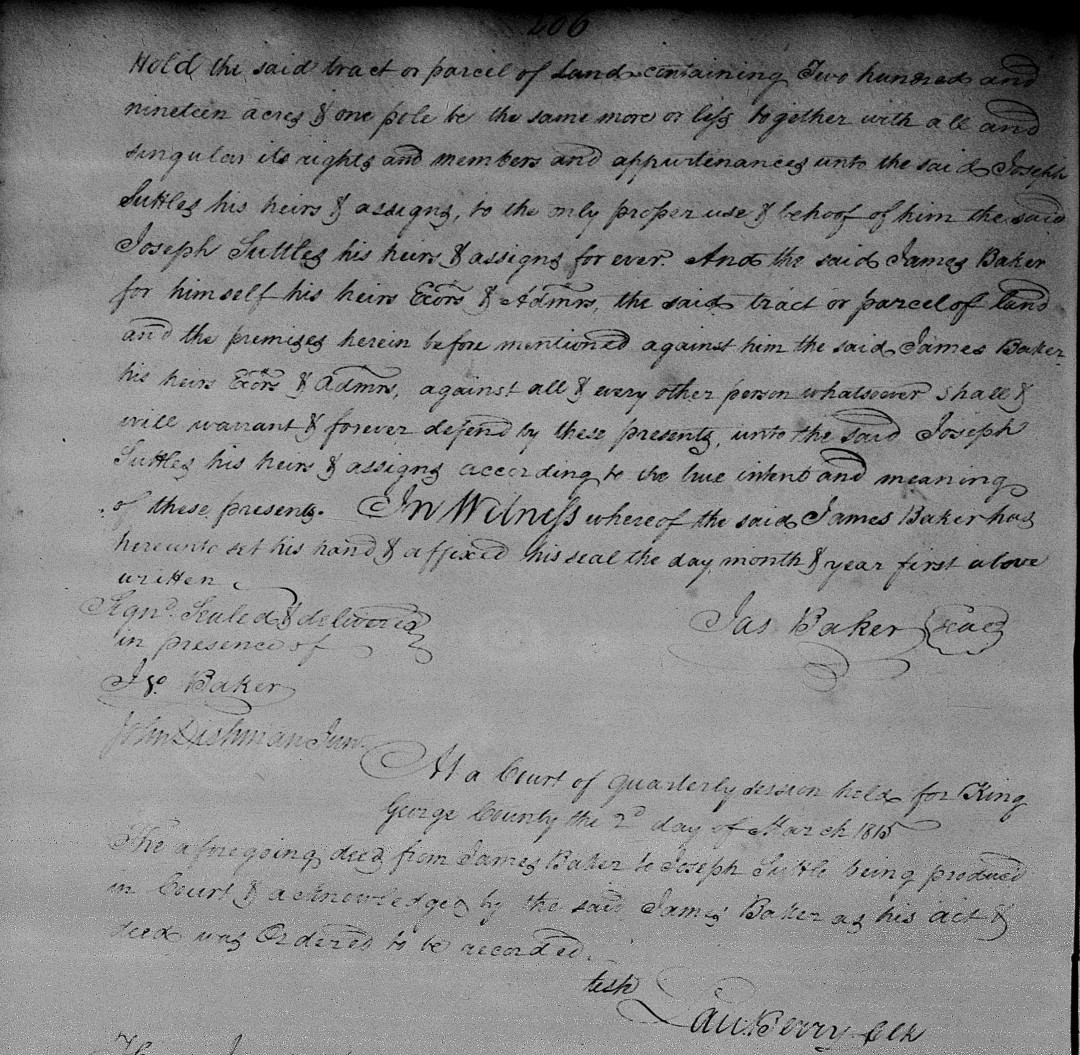 206
Hold the said tract or parcel of Land containing Two hundred and
nineteen acres & one pole be the same more or less together with all and
singular its rights and members and appurtenances unto the said Joseph
Suttles his heirs & assigns, to the only proper use & behoof of him the said
Joseph Suttles his heirs & assigns for ever. And the said James Baker
for himself his heirs Exors & Admrs, the said tract or parcel of land
and the premises herein before mentioned against him the said James Baker
his heirs Exors & Admrs, against all & every other person whatsoever shall &
will warrant & forever defend by these presents, unto the said Joseph
Suttles his heirs & assigns according to the true intent and meaning
of these presents. In Witness whereof the said James Baker has
hereunto set his hand & affixed his seal the day month & year first above
written
Signd. Sealed & delivered
in presence of
Jas Baker Seal
Jno. Baker
John Dishman Junr
At a Court of quarterly session held for King
George County the 2d day of March 1815
The aforegoing deed from James Baker to Joseph Suttle being produced
in Court & acknowledged by the said James Baker as his act &
deed was Ordered to be recorded.
test
Lau. Berry Clk